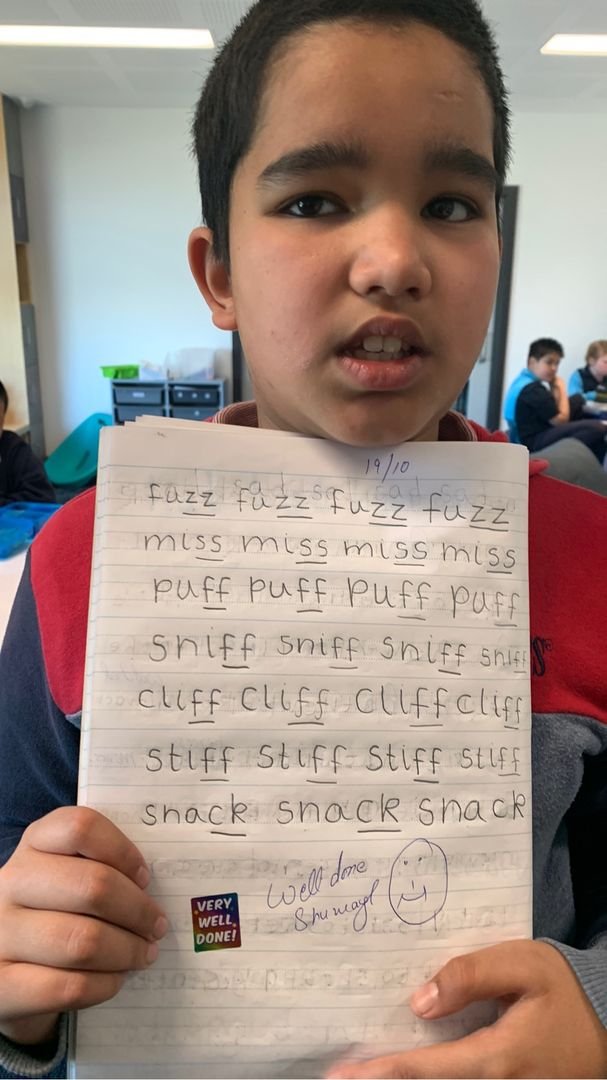 19/10
fuzz fuzz fuzz fuzz
miss miss miss miss
puff puff puff puff
sniff sniff sniff sniff
cliff cliff cliff cliff
stiff stiff stiff stiff
snack snack snack
Well done
Shumayl
VERY
WELL
DONE!